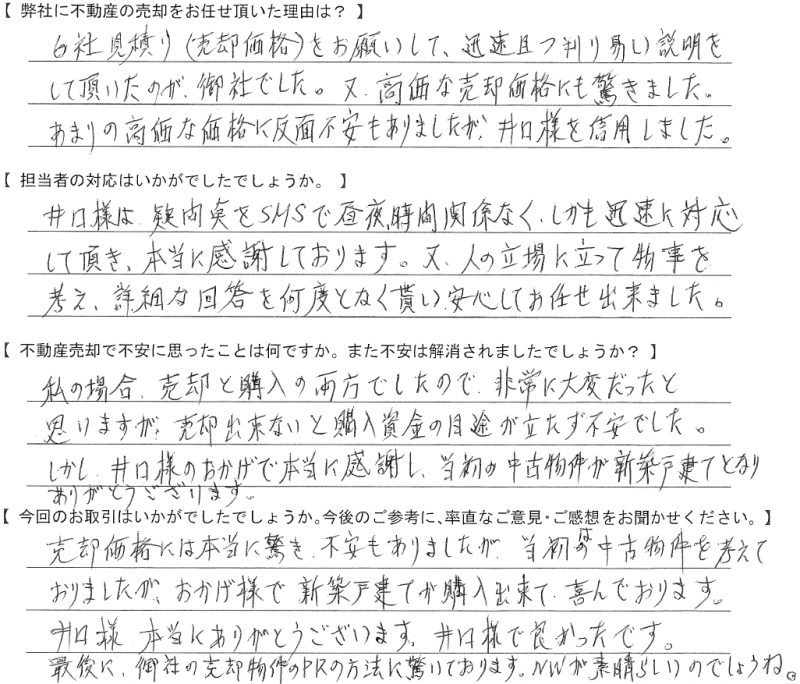 【 弊社に不動産の売却をお任せ頂いた理由は？ 】
6社見積り(売却価格)をお願いして、迅速且つ判り易い説明を
して頂いたのが、御社でした。又、高価な売却価格にも驚きました。
あまりの高価な価格に反面不安もありましたが、井口様を信用しました。
【 担当者の対応はいかがでしたでしょうか。 】
井口様は、疑問点をSMSで昼夜、時間関係なく、しかも迅速に対応
して頂き、本当に感謝しております。又、人の立場に立って物事を
考え、詳細な回答を何度となく貰い、安心してお任せ出来ました。
【 不動産売却で不安に思ったことは何ですか。また不安は解消されましたでしょうか？ 】
私の場合、売却と購入の両方でしたので、非常に大変だったと
思いますが、売却出来ないと購入資金の目途が立たず不安でした。
しかし、井口様のおかげで本当に感謝し、当初の中古物件が新築戸建てとなり
ありがとうございます。
【 今回のお取引はいかがでしたでしょうか。今後のご参考に、率直なご意見・ご感想をお聞かせください。 】
売却価格には本当に驚き、不安もありましたが、当初は中古物件を考えて
おりましたが、おかげ様で新築戸建てが購入出来て、喜んでおります。
井口様、本当にありがとうございます。井口様で良かったです。
最後に、御社の売却物件のPRの方法に驚いております。NWが素晴らしいのでしょうね。